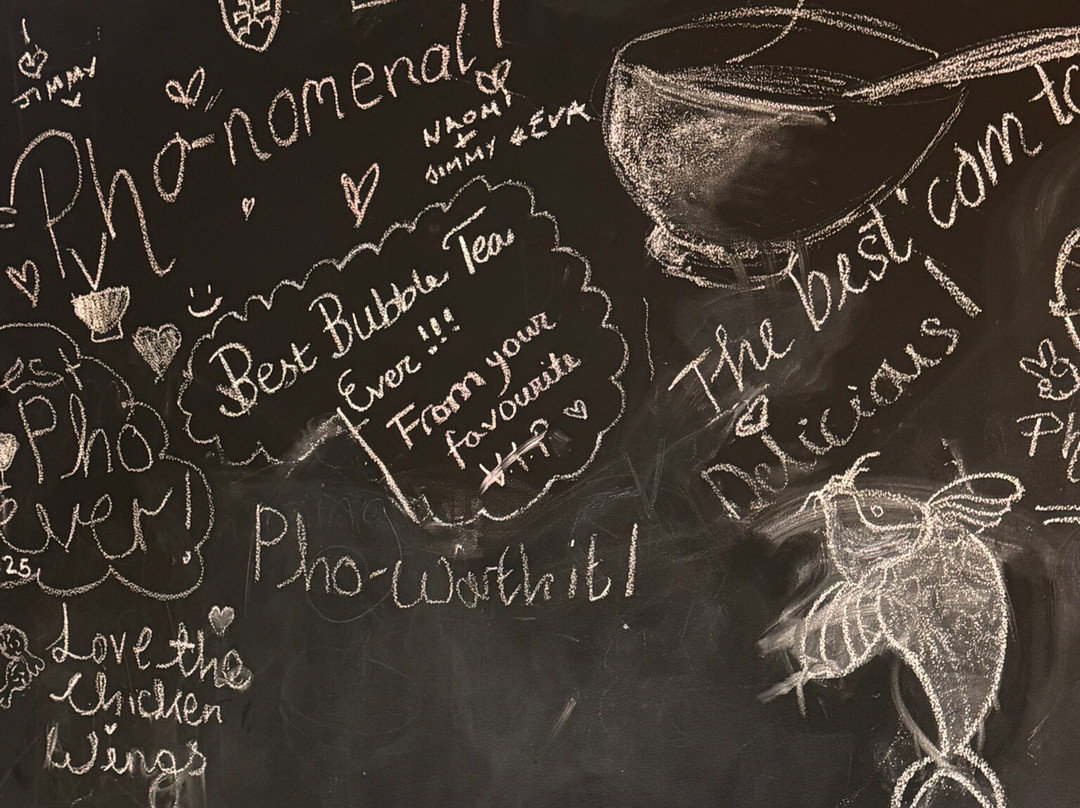 JIMMY
Pho-nomenal!
NAOMI
+
JIMMY & EVA
Best Bubble Tea
Ever !!!
From your
favourite
The best 'com to
Delicious!
est
Pho
ever!
25
Pho-worth it!
Love the
Chicken
Wings
Ph